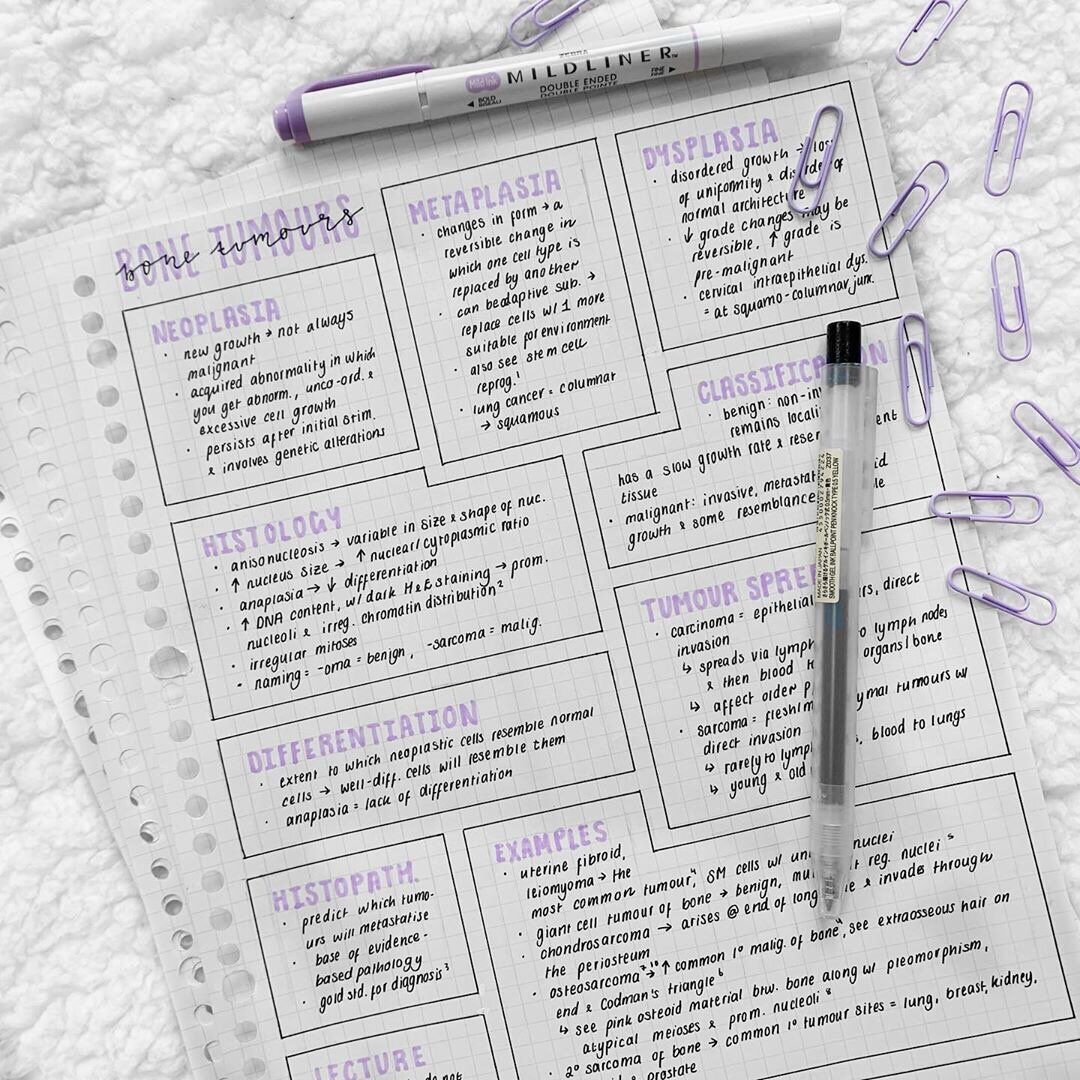 ZEBRA
Mild Ink
MILDLINER™
BOLD
BISEAU
DOUBLE ENDED
DOUBLE POINTE
FINE
FINE
BONE TUMOURS
bone tumours
NEOPLASIA
· new growth → not always
malignant
· acquired abnormality in which
you get abnorm., unco-ord. &
excessive cell growth
· persists after initial stim.
& involves genetic alterations
METAPLASIA
· changes in form → a
reversible change in
which one cell type is
replaced by another
· can be adaptive sub. →
replace cells w/ 1 more
suitable for environment
· also see stem cell
reprog.¹
· lung cancer = columnar
→ squamous
DYSPLASIA
· disordered growth →
of uniformity & disorder of
normal architecture
· ↓ grade changes may be
reversible, ↑ grade is
pre-malignant
· cervical intraepithelial dys.
= at squamo-columnar junx.
CLASSIFICATION
· benign: non-
remains
has a slow growth rate &
tissue
· malignant: invasive,
growth & some resemblance
HISTOLOGY
· anisonucleosis → variable in size & shape of nuc.
· ↑ nucleus size → ↑ nuclear/cytoplasmic ratio
· anaplasia → ↓ differentiation
· ↑ DNA content, w/ dark H&E staining → prom.
nucleoli & irreg. chromatin distribution²
· irregular mitoses
- naming = -oma = benign, -sarcoma = malig.
TUMOUR SPREAD
· carcinoma = epithelial direct
invasion
↳ spreads via lymph to lymph nodes
& then blood organs/bone
↳ affect older
· sarcoma = tumours w/
direct invasion
↳ rarely to lymph blood to lungs
↳ young & old
MADE IN JAPAN
SMOOTH GEL INK BALLPOINT PEN KNOCK TYPE 0.5 YELLOW
4550002764224
DIFFERENTIATION
· extent to which neoplastic cells resemble normal
cells → well-diff. cells will resemble them
· anaplasia = lack of differentiation
HISTOPATH.
· predict which tumo-
urs will metastatise
· base of evidence-
based pathology
· gold std. for diagnosis³
EXAMPLES
· uterine fibroid,
leiomyoma → the
most common tumour,⁴ SM cells w/ nuclei
· giant cell tumour of bone → benign, reg. nuclei⁵
· chondrosarcoma → arises @ end of long & invades through
the periosteum
· osteosarcoma → ↑ common 1° malig. of bone, see extraosseous hair on
end & Codman's triangle⁶
↳ see pink osteoid material btw. bone along w/ pleomorphism,
atypical meioses & prom. nucleoli⁸
· 2° sarcoma of bone → common 1° tumour sites = lung, breast, kidney,
& prostate
LECTURE
not